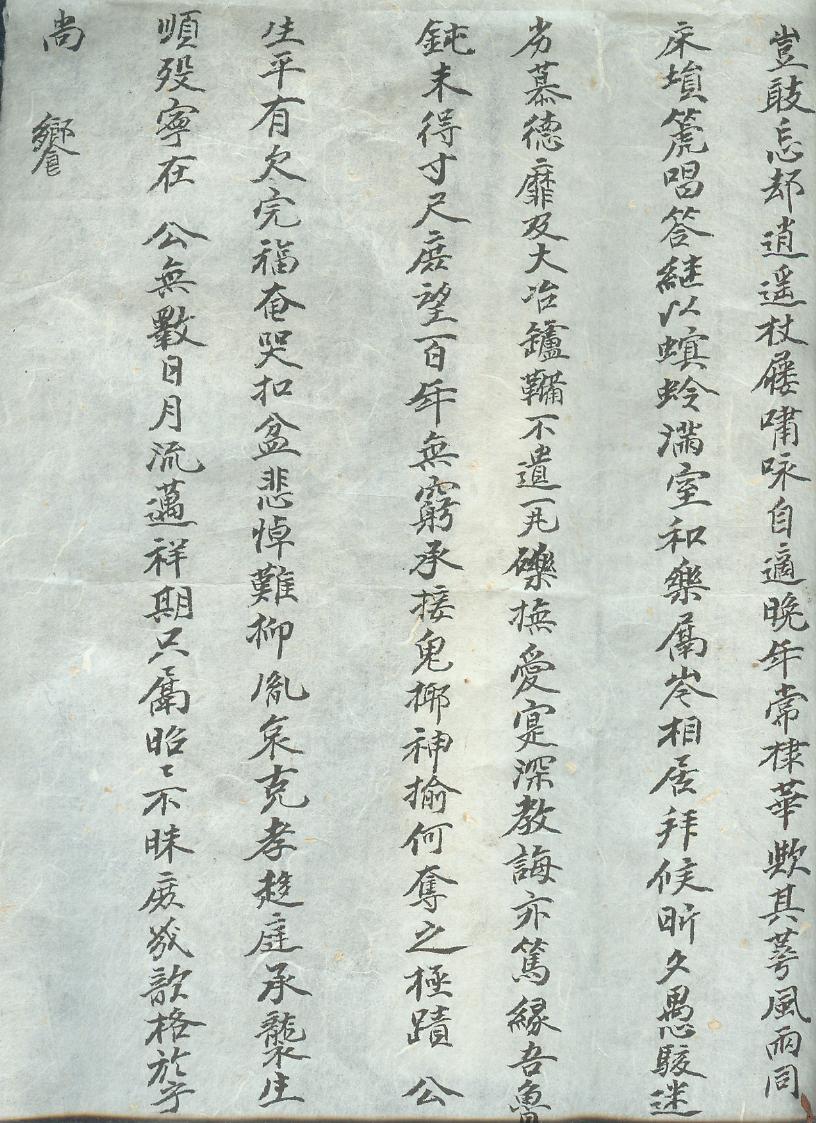 豈敢忘却逍遥杖屨嘯咏自適晩年常棣華歟其萼風雨同
床塤篪唱答継以螟蛉滿室和樂屬岺相居拜候昕夕愚騃迷
劣慕德靡及大冶鑪鞴不遺一瓦礫撫愛寔深教誨亦篤緣吾魯
鈍未得寸尺庶望一百年無窮承接鬼揶神揄何奪之極蹟 公
生平有欠完福奄哭扣盆悲悼難抑胤哀克孝趍庭承襲生
順歿寧在 公無斁日月流邁祥期只屬昭〻不昧庶幾歆格於乎
尚 饗